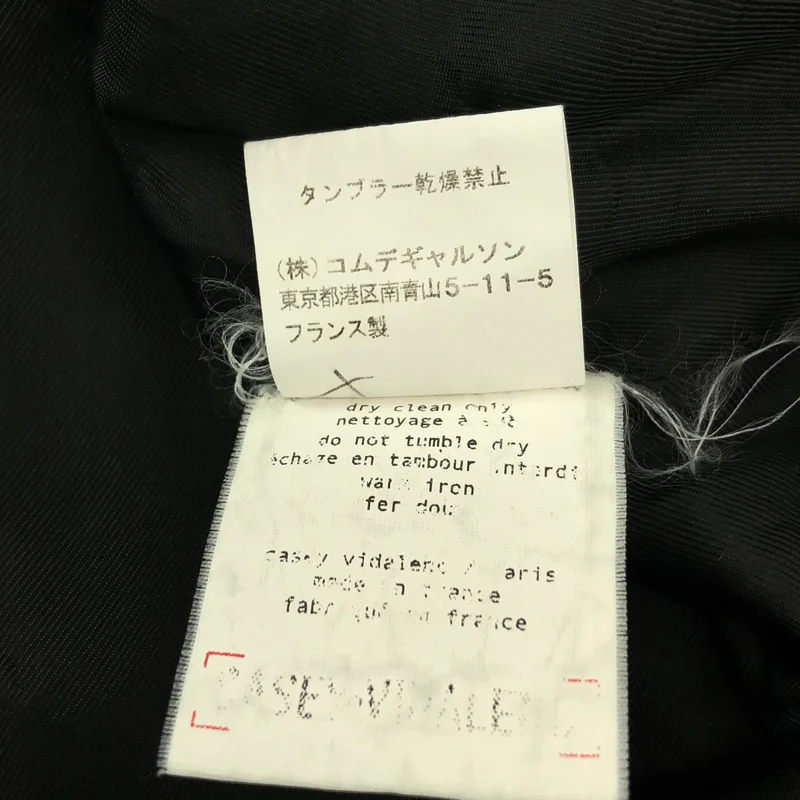 タンブラー乾燥禁止
(株)コムデギャルソン
東京都港区南青山5-11-5
フランス製
dry clean only
nettoyage à
do not tumble dry
en tambour interdi
warm iron
fer dou
casey vidalenc / aris
made in france
en france
CASEY·VIDALEN